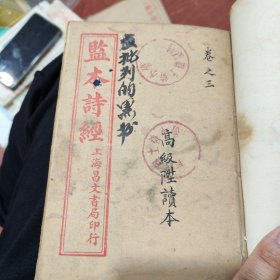 卷之三
高級陞讀本
应批判的黑书
監本詩經
上海昌文書局印行